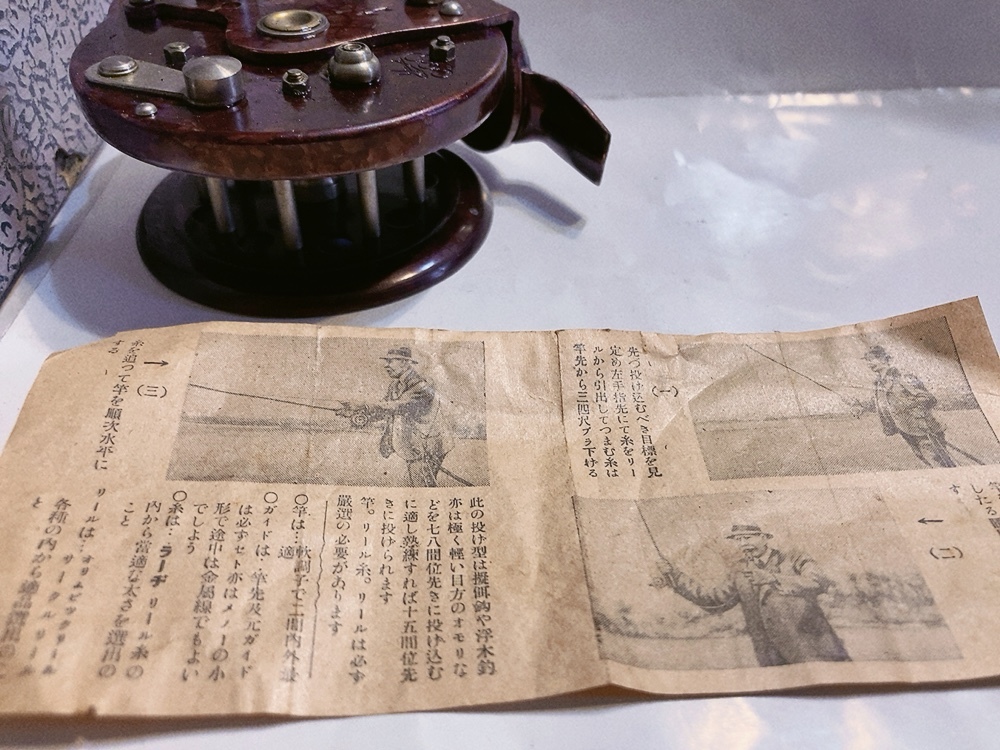 (一)
先づ投け込むべき目標を見
定め左手指先にて糸をリー
ルから引出してつまむ糸は
竿先から三四尺ブラ下ける
←
(二)
したる
す。
(三)
糸を追つて竿を順次水平に
する
此の投け型は擬餌鈎や浮木釣
亦は極く輕い目方のオモリな
どを七八間位先きに投け込む
に適し熟練すれば十五間位先
きに投けられます
竿。リール糸。リールは必す
嚴選の必要があります
〇竿は…軟調子で二間内外最
適
〇ガイドは・竿先及元ガイド
は必すセト亦はメノーの小
形での途中は金屬線でもよい
でしよう
〇糸は…ラーヂリール糸の
内から當適な太さを選出の
こと
リールは…オリムピックリール
サークルリール
各種の内から
と